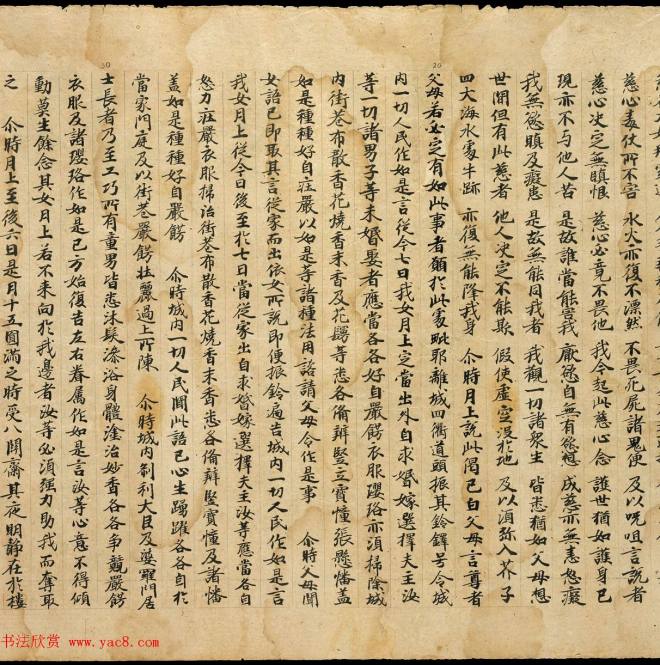 慈心毒仗所不害 水火亦復不漂然 不畏死屍諸鬼使 及以呪咀言說者
慈心决定無瞋恨 慈心必竟不畏他 我今起此慈心念 護世猶如護身已
現亦不与他人苦 是故誰當能害我 猒慾自無有慾想 成慈亦無恚怒癡
我無慾瞋及癡恚 是故無能同我者 我觀一切諸衆生 皆悉猶如父母想
世間但有此慈者 他人决定不能欺 假使虛空沒於地 及以湏弥入芥子
四大海水處牛跡 亦復無能降我身 尒時月上說此偈已白父母言尊者
父母若必定有如此事者願於此處毗耶離城四衢道頭振其鈴鐸号令城
內一切人民作如是言從今七日我女月上定當出外自求婚嫁選擇夫主汝
等一切諸男子等未婚娶者應當各各好自嚴餝衣服瓔珞亦湏掃除城
內街巷布散香花燒香末香及花鬘等悉各俻辦竪立寶憧張懸幡蓋
如是種種好自莊嚴以如是等諸種法用諮請父母令作是事 尒時父母聞
女語已即取其言從家而出依女所說即便振鈴遍告城內一切人民作如是言
我女月上從今日後至於七日當從家出自求婚嫁選擇夫主汝等應當各自
怒力莊嚴衣服掃治街巷布散香花燒香末香悉各俻辦竪寶憧及諸幡
蓋如是種種好自嚴餝 尒時城內一切人民聞此語已心生踊躍各各自於
當家門庭及以街巷嚴餝壯麗過上所陳 尒時城內剎利大臣及婆羅門居
士長者乃至工巧所有童男皆悉沐髮澡浴身體塗治妙香各各爭競嚴餝
衣服及諸瓔珞作如是已方始復告左右眷屬作如是言汝等心意不得傾
動莫生餘念其女月上若不来向於我邊者汝等必湏强力助我而奪取
之 尒時月上至後六日是月十五圓滿之時受八關齋其夜明静在於樓
20
30
书法欣赏 www.yac8.com